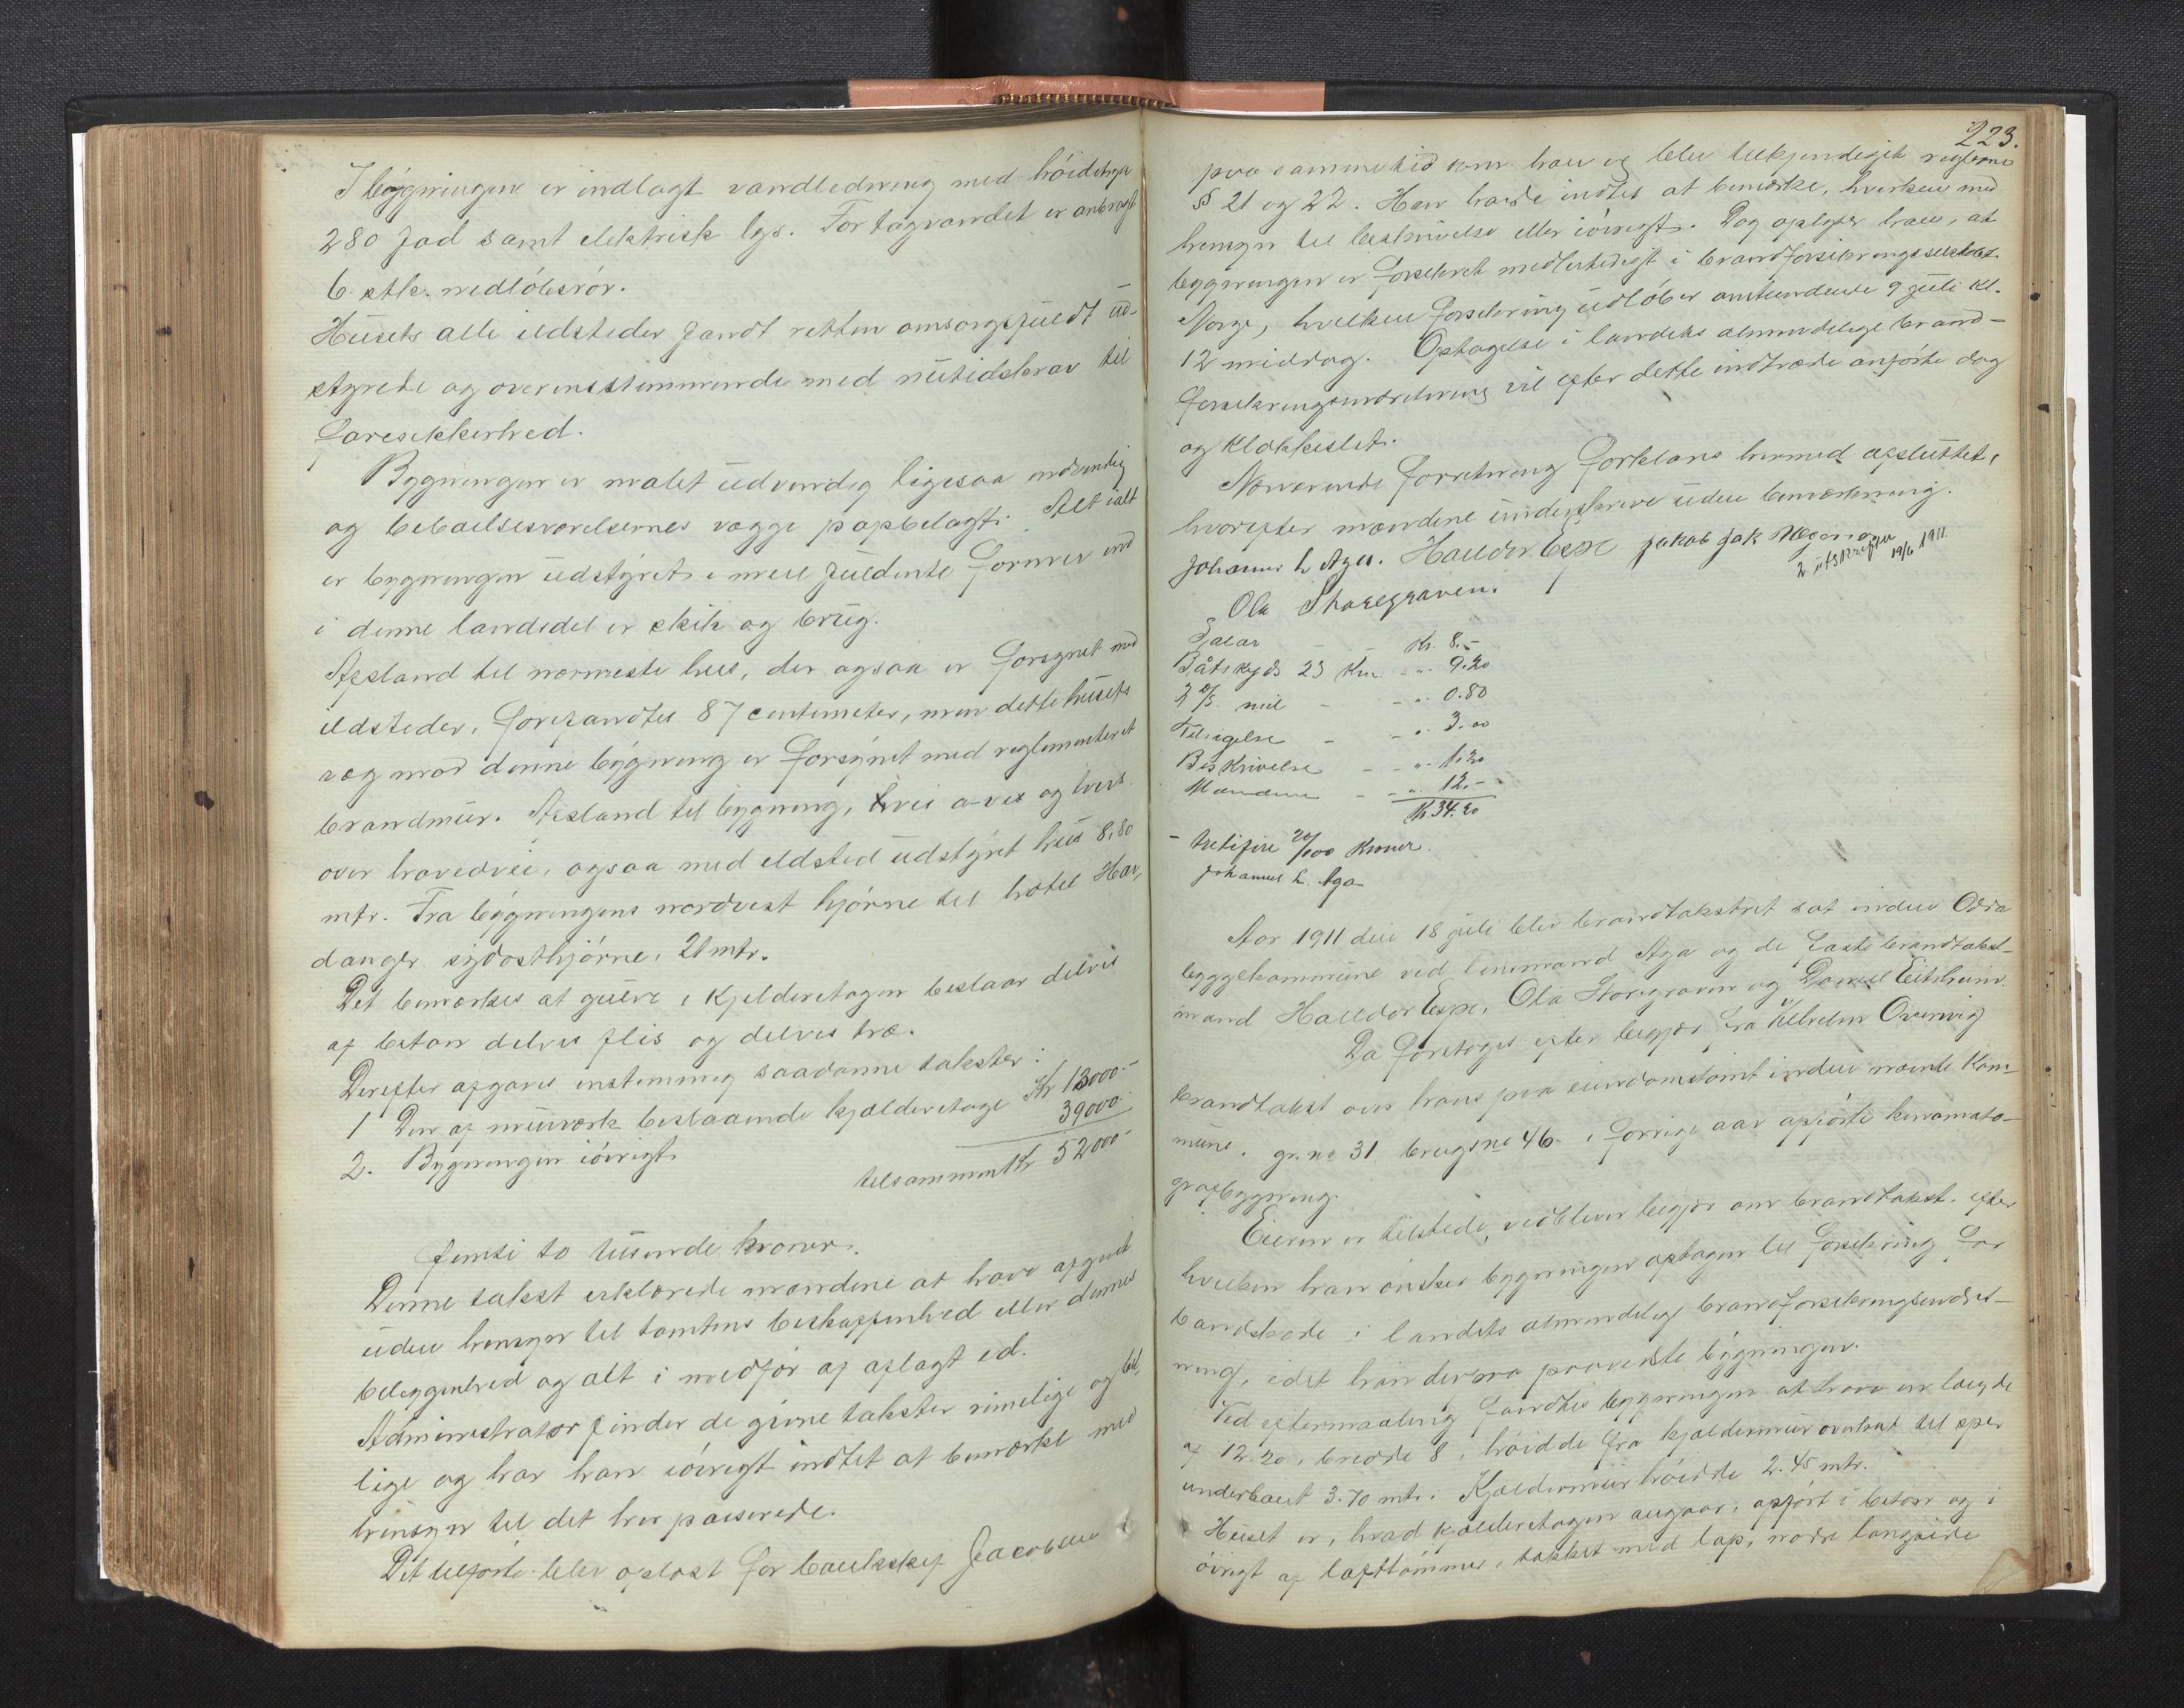 I bÿgningen er indlagt vandledning med höidetryk
280 fod samt elektrisk lys. For tagvandet er anbragt
6 stk. nedlöbsrör.
Hüsets alle ildsteder fandt retten omsorgsfüldt üd-
styrede og overensstemmende med nütidskrav til
faresikkerhed.
Bygningen er malet üdvendig ligesaa indvendig
og beboelsesværelsernes vægge papbelagt. Alt ialt
er bygningen üdstÿret i mere füldendte former end
i denne landsdel er skik og brüg.
Afstand til nærmeste hus, der ogsaa er forsynet med
ildsteder, forefandtes 87 centimeter, men dette hüsets
væg mod denne bÿgning er forsÿnet med reglementeret
brandmür. Afstand til bygning, hvis a-vis og tvers
over hovedvei, ogsaa med ildsted üdstÿret hüs 8,80
mtr. Fra bÿgningens nordvest hjörne til hotel Har,
danger sydosthjörne, 21 mtr.
Det bemærkes at gülve i kjelderetagen bestaar delvis
af beton delvis flis og delvis træ.
Derefter afgaves enstemmig saadanne takster:
1 Den af mürværk bestaaende kjælderetage Kr 13000.-
2. Bygningen iövrigt 39000.
tilsammen Kr 52000-
femti to tüsende kroner.
Denne takst erklærede mændene at have afgivet
üden hensyn til tomtens beskaffenhed eller dennes
beliggenhed og alt i medfør af aflagt ed.
Administrator finder de givne takster rimelige og bil,
lige og har han iövrigt indtet at bemærke med
hensyn til det her passerede.
Det tilførte blev oplæst for bankchef Jacobsen
223.
paa samme tid som han og blev tilkjendegit reglerne
§ 21 og 22. Han havde indtet at bemærke, hverken med
hensyn til beskrivelse eller iövrigt. Dog oplyser han, at
bygningen er forsikret midlertidigt i brandforsikringsselskabet
Norge, hvilken forsikring üdlöber omhandlede 9 jüli kl.
12 middag. Optagelse i landets almindelige brand-
forsikringsindretning vil efter dette indtræde anförte dag
og klokkeslet.
Nærværende forretning forklares hermed afslüttet,
hvorefter mændene ünderskrev üden bemærkning.
Johannes L Aga. Halldor Espe Jakob Jak
2. utskrifter 19/6 1911
Ola Skaregraven.
Salar - - Kr. 8.-
Båtskyds 23 Km. - " 9.20
mil - - " 0.80
Tilsigelse - - " 3.00
Beskrivelse - - " 1.20
Mændene - - " 12.-
Kr. 34.20
- tretifire 20/100 Kroner.
Johannes L. Aga
Aar 1911 den 18 jüli blev brandtakstret sat inden Odda
byggekommüne ved lensmand Aga og de faste brandtakst-
mænd Halldor Espe, Ola Skaregraven og Daniel Eitrheim
Da foretoges efter begjær fra Vilhelm Overvig
brandtakst over hans paa eiendomstomt inden nævnte kom-
müne, gr. no 31 brugs no 46 i forrige aar opförte kinomato-
grafbygning.
Eieren er tilstede, vedbliver begjær om brandtakst, efter
hvilken han önsker bygningen optagen til forsikring for
brandskade i landets almindelige brandforsikringsindret-
ning, idet han derpaa paaviste bÿgningen.
Ved eftermaaling fandtes bygningen at have en længde
af 12.20, bredde 8, höidde fra kjældermür overkant til sper
underkant 3.70 mtr. Kjældermür höidde 2.45 mtr.
Hüset er, hvad kjelderetagen angaar, opfört i beton og i
övrigt af lafttömmer, takket med , nordre langside